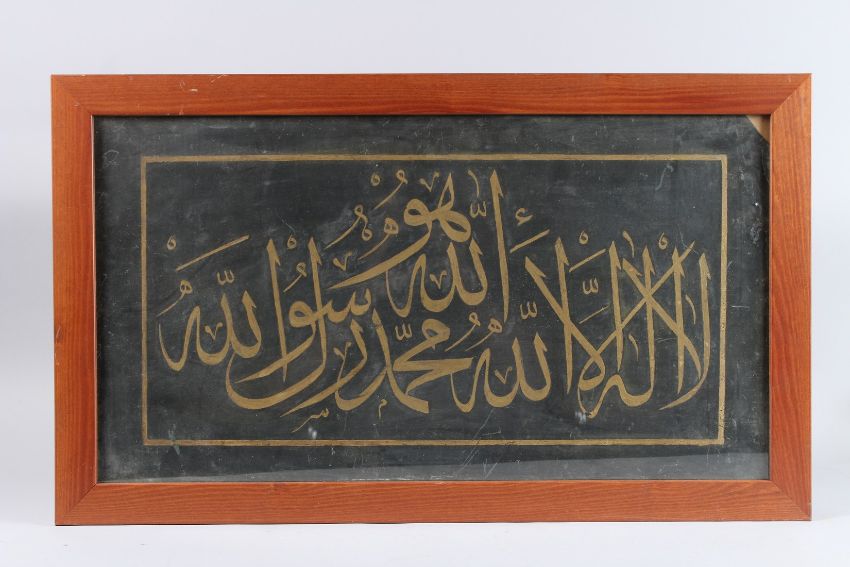 الله هو
لا اله الا الله محمد رسول الله